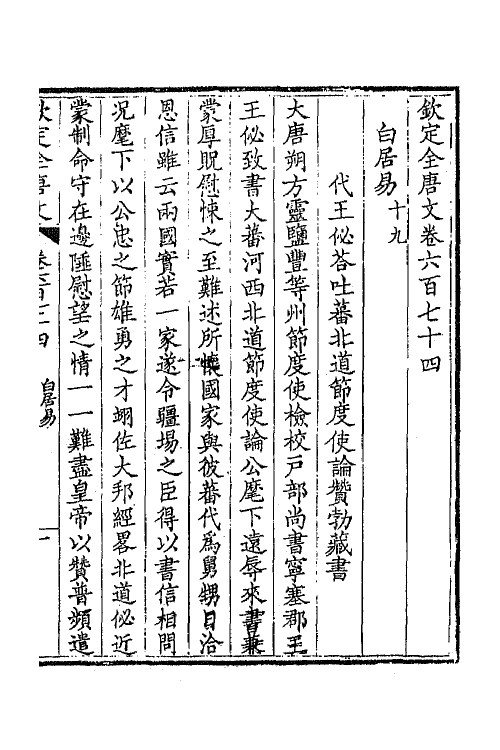 欽定全唐文卷六百七十四
白居易十九
代王佖荅吐蕃北道節度使論贊勃藏書
大唐朔方靈鹽豐等州節度使檢校戸部尚書寧塞郡王
王佖致書大蕃河西北道節度使論公麾下遠辱來書兼
蒙厚貺慰悚之至難述所懷國家與彼蕃代爲舅甥日洽
恩信雖云兩國實若一家遂令疆埸之臣得以書信相問
况麾下以公忠之節雄勇之才翊佐大邦經畧北道佖近
蒙制命守在邊陲慰望之情一一難盡皇帝以贊普頻遣
欽定全唐文 卷六百七十四 白居易 一